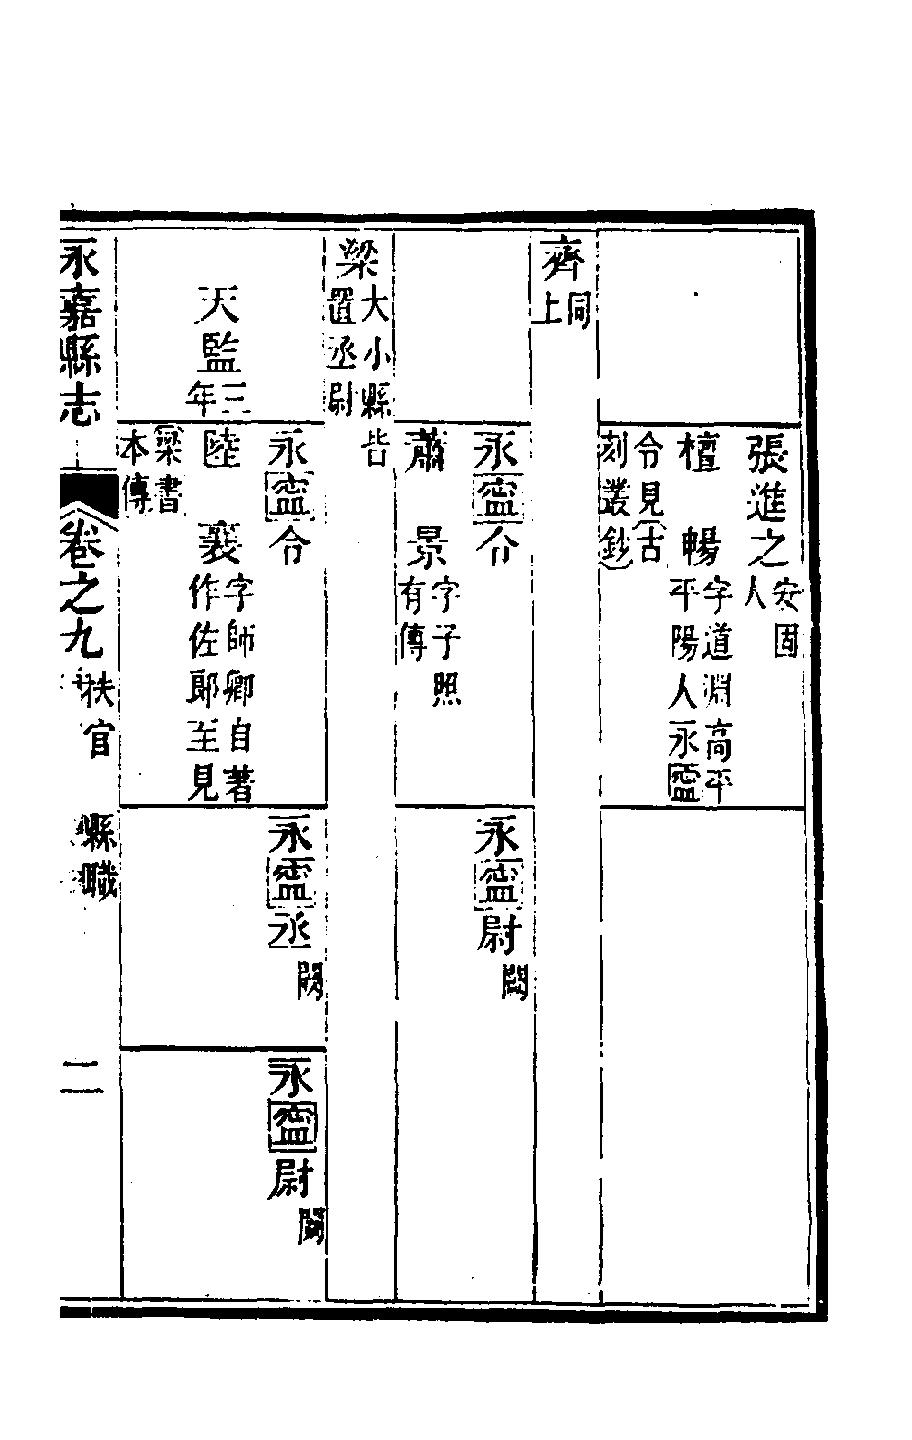 張進之 安固
人
檀暢 字道淵高平
平陽人永寍
令見(古
刻叢鈔)
齊 同
上
永寍令
永寍尉 闕
蕭景 字子照
有傳
梁 大小縣皆
置丞尉
永寍令
永寍丞 闕
永寍尉 闕
天監三年
陸襄 字師卿自著
作佐郎至見
梁書
本傳
永嘉縣志 卷之九 秩官 縣職 二